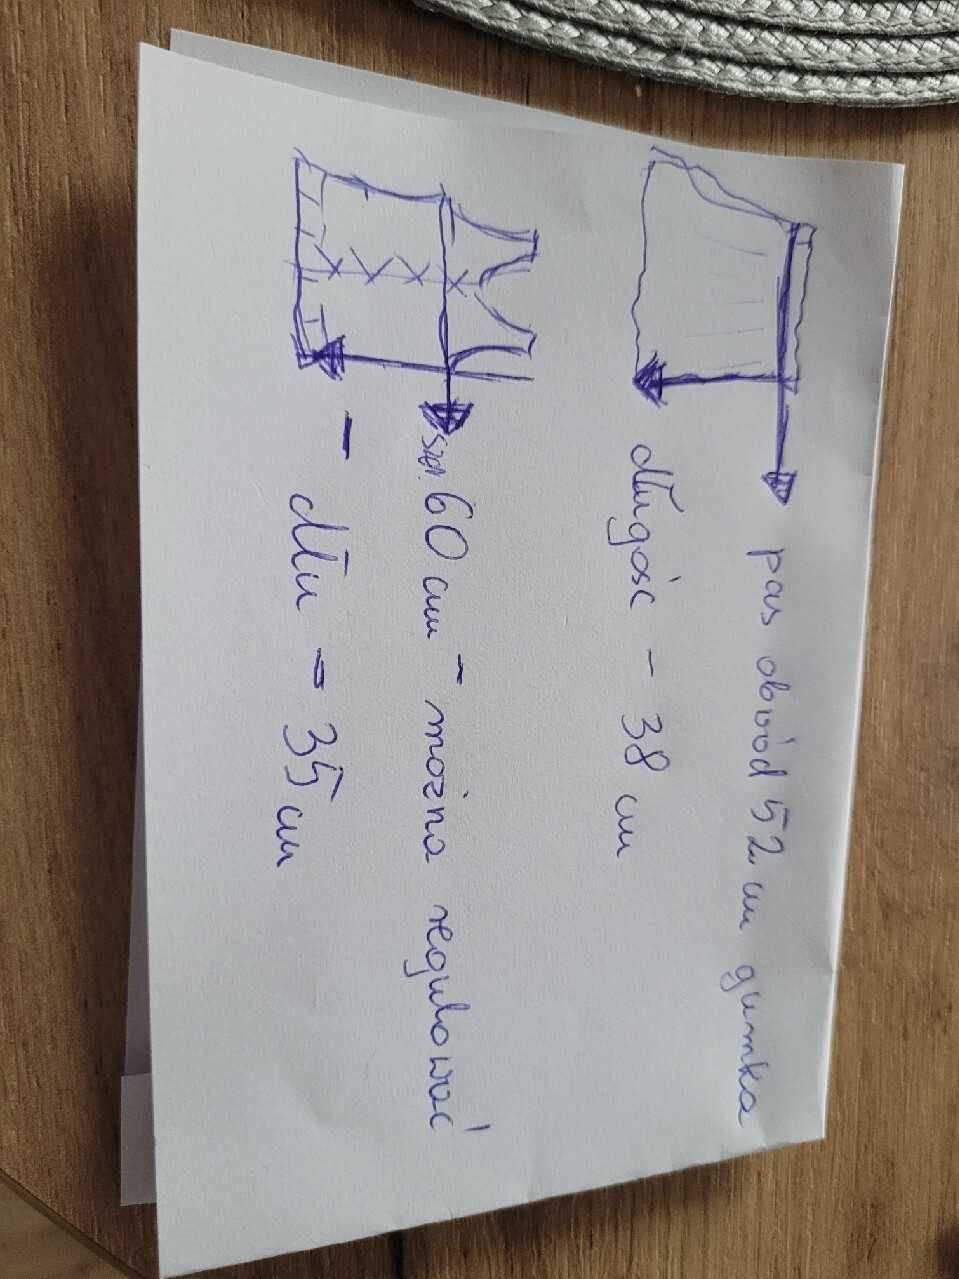 pas obwód 52 cm gumka
długość - 38 cm
szer. 60 cm - można regulować
- dłu - 35 cm